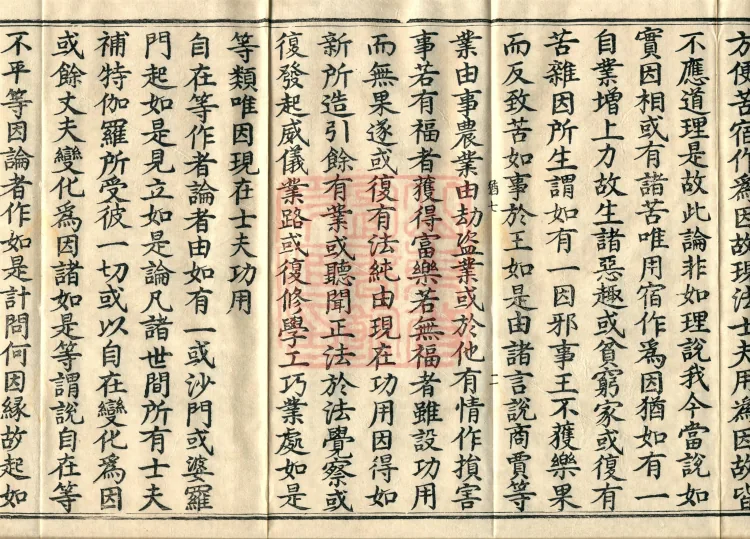 方便苦宿作為因故現法士夫用為因故皆
不應道理是故此論非如理說我今當說如
實因相或有諸苦唯用宿作為因猶如有一
自業增上力故生諸惡趣或貧窮家或復有
苦雜因所生謂如有一因邪事王不獲樂果
而反致苦如事於王如是由諸言說商賈等
業由事農業由劫盜業或於他有情作損害
事若有福者獲得富樂若無福者雖設功用
而無果遂或復有法純由現在功用因得如
新所造引餘有業或聽聞正法於法覺察或
復發起威儀業路或復修學工巧業處如是
等類唯因現在士夫功用
自在等作者論者由如有一或沙門或婆羅
門起如是見立如是論凡諸世間所有士夫
補特伽羅所受彼一切或以自在變化為因
或餘丈夫變化為因諸如是等謂說自在等
不平等因論者作如是計問何因緣故起如